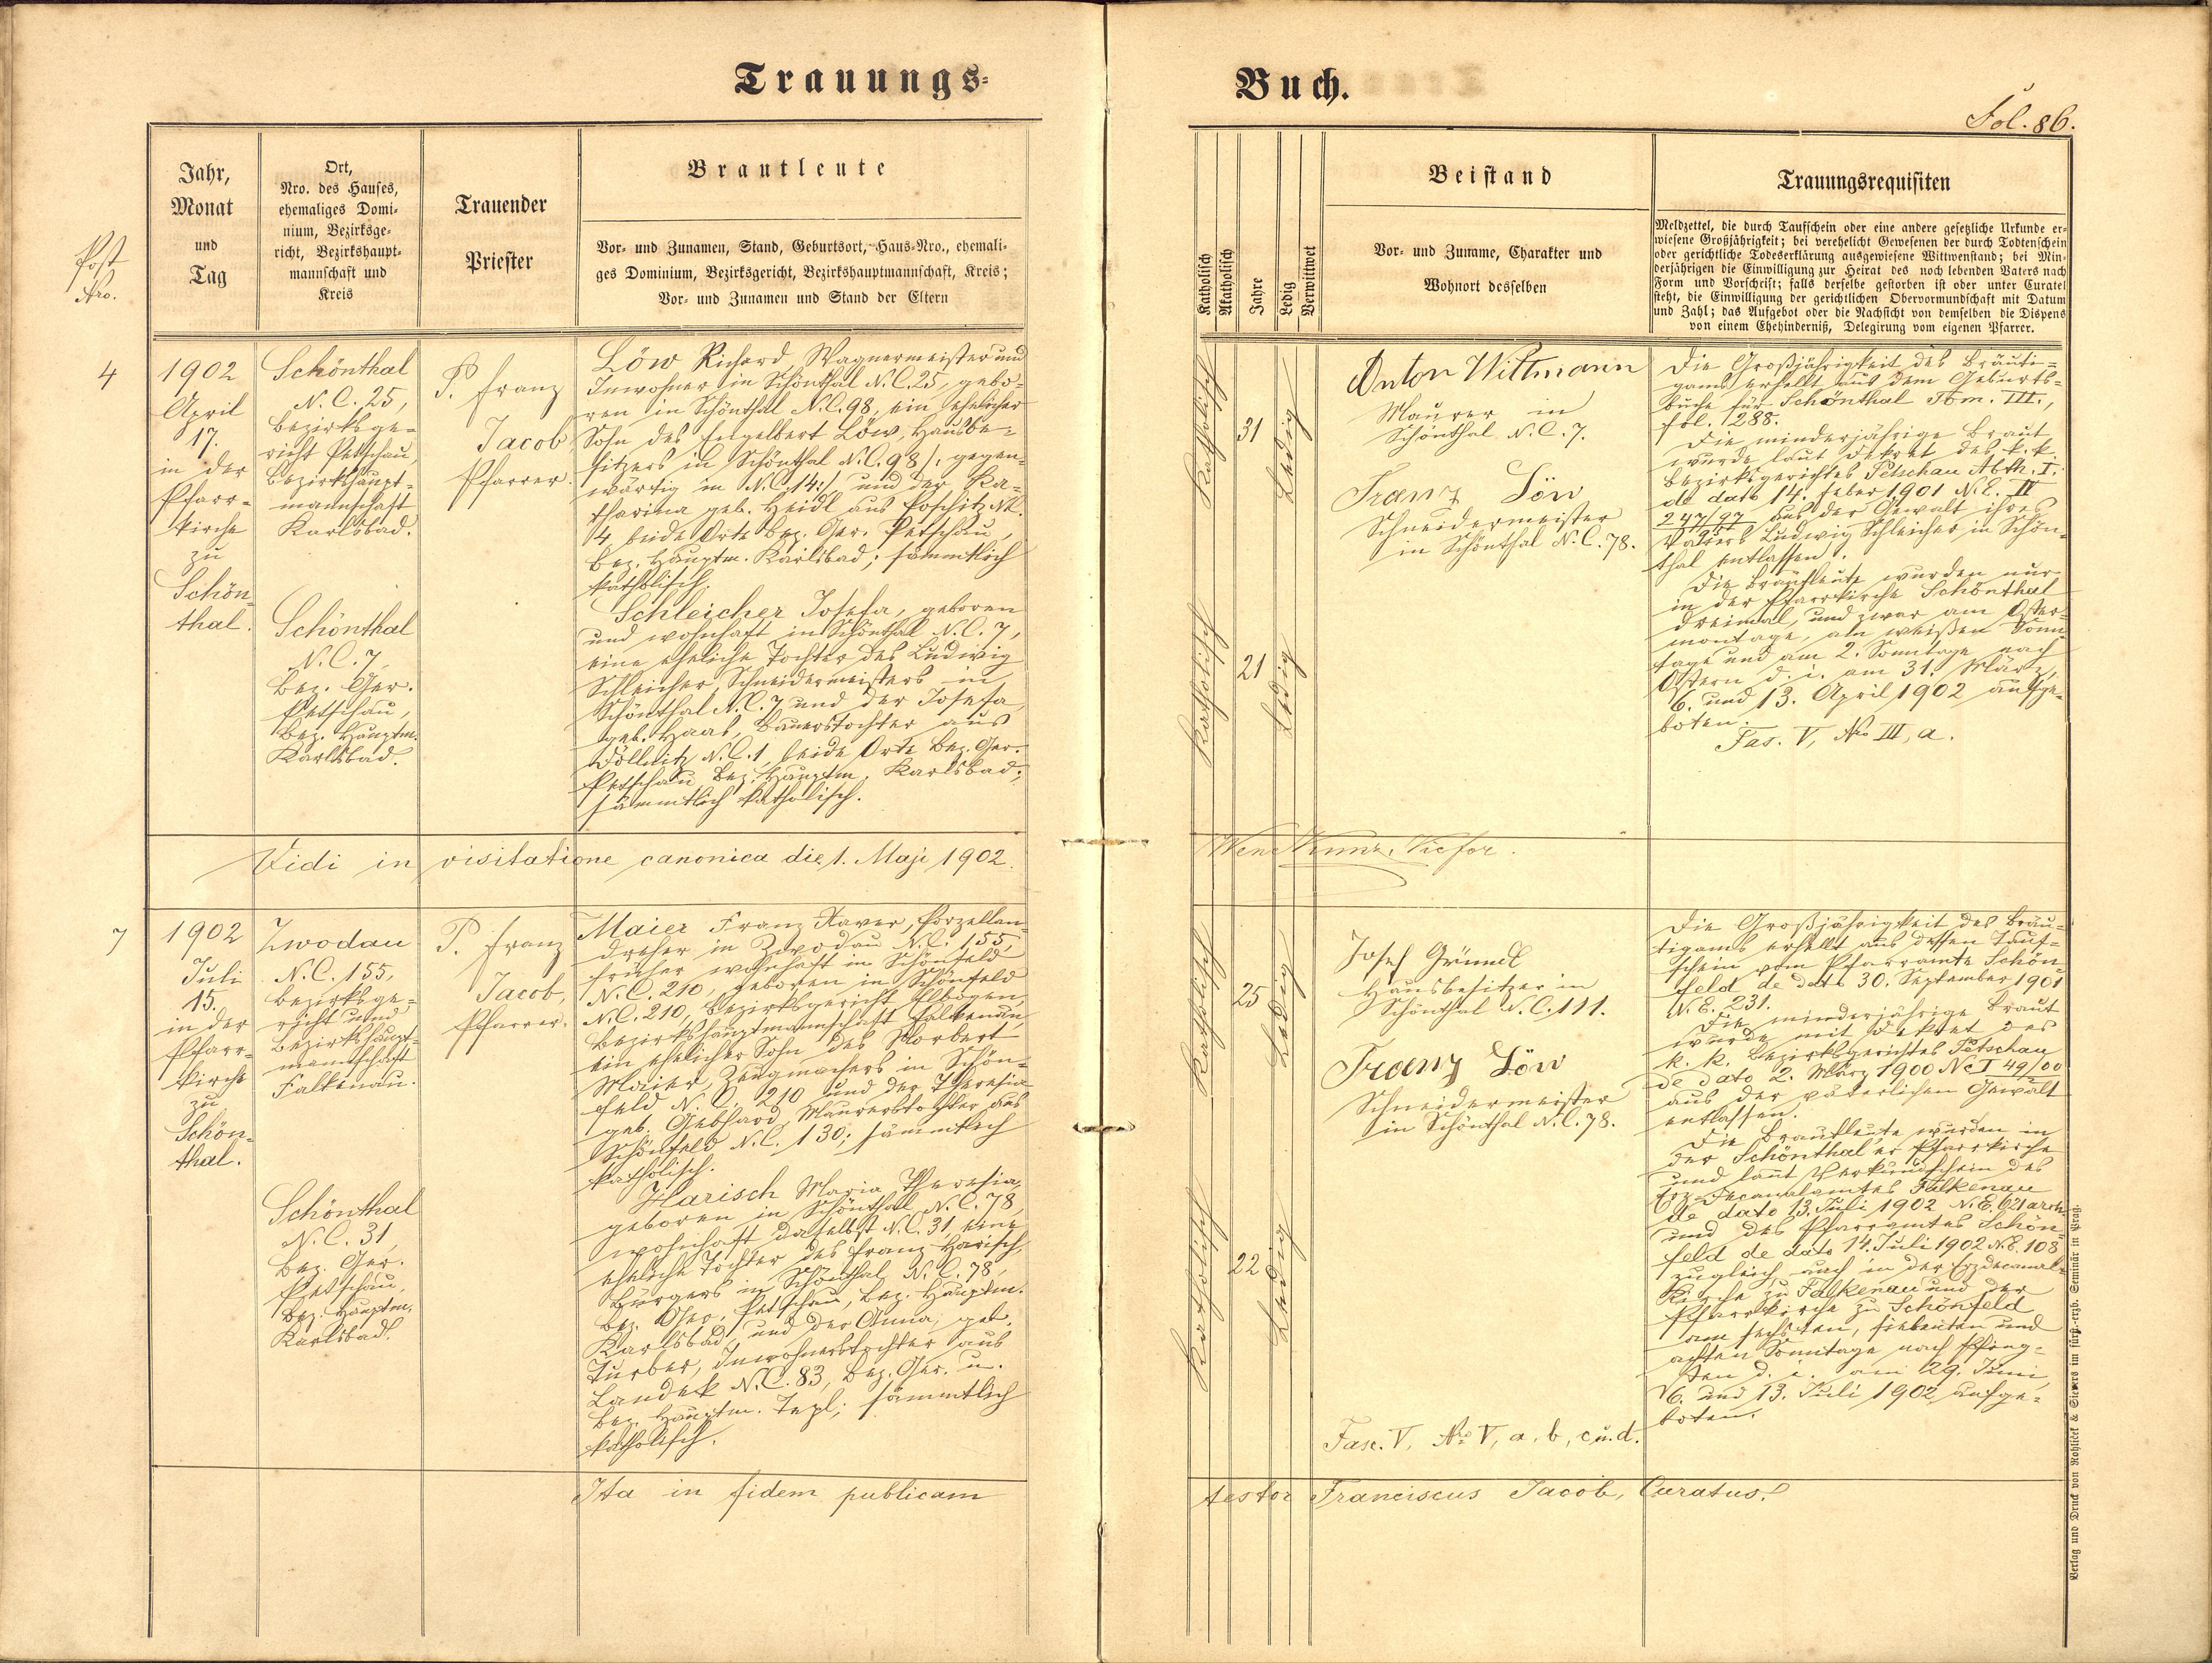 Trauungs-
Buch.
Fol. 86.
Post
Nro.
Jahr,
Monat
und
Tag
Ort,
Nro. des Hauses,
ehemaliges Domi-
nium, Bezirksge-
richt, Bezirkshaupt-
mannschaft und
Kreis
Trauender
Priester
Brautleute
Vor- und Zunamen, Stand, Geburtsort, Haus-Nro., ehemali-
ges Dominium, Bezirksgericht, Bezirkshauptmannschaft, Kreis;
Vor- und Zunamen und Stand der Eltern
Katholisch
Akatholisch
Jahre
Ledig
Verwittwet
Beistand
Vor- und Zuname, Charakter und
Wohnort desselben
Trauungsrequisiten
Meldzettel, die durch Taufschein oder eine andere gesetzliche Urkunde er-
wiesene Großjährigkeit; bei verehelicht Gewesenen der durch Todtenschein
oder gerichtliche Todeserklärung ausgewiesene Wittwenstand; bei Min-
derjährigen die Einwilligung zur Heirat des noch lebenden Vaters nach
Form und Vorschrift; falls derselbe gestorben ist oder unter Curatel
steht, die Einwilligung der gerichtlichen Obervormundschaft mit Datum
und Zahl; das Aufgebot oder die Nachsicht von demselben die Dispens
von einem Ehehinderniß, Delegirung vom eigenen Pfarrer.
4
1902
April
17.
in der
Pfarr-
kirche
zu
Schön-
thal.
Schönthal
N. C. 25,
Bezirksge-
richt Petschau,
Bezirkshaupt-
mannschaft
Karlsbad.
Schönthal
N. C. 7,
Bez. Ger.
Petschau,
Bez. Hauptm.
Karlsbad.
P. Franz
Jacob,
Pfarrer.
Löw Richard, Wagnermeister und
Inwohner in Schönthal N. C. 25, gebo-
ren in Schönthal N. C. 98, ein ehelicher
Sohn des Engelbert Löw, Hausbe-
sitzers in Schönthal N. C. 98 /: gegen-
wärtig in N. C. 14 :/ und der Ka-
tharina geb. Heidl aus Poschitz N.
4, beide Orte Bez. Ger. Petschau,
Bez. Hauptm. Karlsbad; sämmtlich
katholisch.
Schleicher Josefa, geboren
und wohnhaft in Schönthal N. C. 7,
eine eheliche Tochter des Ludwig
Schleicher, Schneidermeisters in
Schönthal N. C. 7 und der Josefa
geb. Haas, Bauerstochter aus
Döllnitz N. C. 1, beide Orte Bez. Ger.
Petschau Bez. Hauptm. Karlsbad;
sämmtlich katholisch.
Katholisch
31
Ledig
Katholisch
21
Ledig
Anton Wittmann
Maurer in
Schönthal N. C. 7.
Franz Löw
Schneidermeister
in Schönthal N. C. 78.
Die Großjährigkeit des Bräuti-
gams erhellt aus dem Geburts-
buche für Schönthal Tom. III.,
fol. 288.
Die minderjährige Braut
wurde laut Dekret des k. k.
Bezirksgerichtes Petschau Abth. I.
de dato 14. Feber 1901 N. E. IV
247/97 aus der Gewalt ihres
Vaters Ludwig Schleicher in Schön-
thal entlassen.
Die Brautleute wurden nur
in der Pfarrkirche Schönthal
dreimal, und zwar am Oster-
montage, am weißen Sonn-
tage und am 2. Sonntage nach
Ostern d. i. am 31. März,
6. und 13. April 1902 aufge-
boten.
Fas. V, No III, a.
Vidi in visitatione canonica die 1. Maji 1902.
7
1902
Juli
15.
in der
Pfarr-
kirche
zu
Schön-
thal.
Zwodau
N. C. 155,
Bezirksge-
richt und
Bezirkshaupt-
mannschaft
Falkenau.
Schönthal
N. C. 31,
Bez. Ger.
Petschau,
Bez. Hauptm.
Karlsbad.
P. Franz
Jacob,
Pfarrer.
Maier Franz Xaver, Porzellan-
dreher in Zwodau N. C. 155,
früher wohnhaft in Schönfeld
N. C. 210, geboren in Schönfeld
N. C. 210, Bezirksgericht Elbogen,
Bezirkshauptmannschaft Falkenau,
ein ehelicher Sohn des Norbert
Maier, Zeugmachers in Schön-
feld N. C. 210 und der Theresia
geb. Gebhard, Maurerstochter aus
Schönfeld N. C. 130; sämmtlich
katholisch.
Harisch Maria Theresia,
geboren in Schönthal N. C. 78,
wohnhaft daselbst N. C. 31, eine
eheliche Tochter des Franz Harisch,
Bürgers in Schönthal N. C. 78,
Bez. Ger. Petschau, Bez. Hauptm.
Karlsbad, und der Anna, geb.
Turber, Inwohnerstochter aus
Landek N. C. 83, Bez. Ger. u.
Bez. Hauptm. Tepl; sämmtlich
katholisch.
Katholisch
25
Ledig
Katholisch
22
Ledig
Josef Gründl
Hausbesitzer in
Schönthal N. C. 111.
Franz Löw
Schneidermeister
in Schönthal N. C. 78.
Fasc. V, No V, a, b, c u. d.
Die Großjährigkeit des Bräu-
tigams erhellt aus dessen Tauf-
schein vom Pfarramte Schön-
feld de dato 30. September 1901
N. E. 231.
Die minderjährige Braut
wurde mit Dekret des
k. k. Bezirksgerichtes Petschau
de dato 2. März 1900 Nc I 49/00
aus der väterlichen Gewalt
entlassen.
Die Brautleute wurden in
der Schönthal'er Pfarrkirche
und laut Verkündschein des
Erz-Decanalamtes Falkenau
de dato 13. Juli 1902 N. E. 621 arch.
und des Pfarramtes Schön-
feld de dato 14. Juli 1902 N. E. 108
zugleich auch in der Erzdecanal-
Kirche zu Falkenau und der
Pfarrkirche zu Schönfeld
am sechsten, siebenten und
achten Sonntage nach Pfing-
sten d. i. am 29. Juni,
6. und 13. Juli 1902 aufge-
boten.
Ita in fidem publicam testor Franciscus Jacob, Curatus.
Verlag und Druck von Rohliček & Sievers im fürst-erzb. Seminär in Prag.